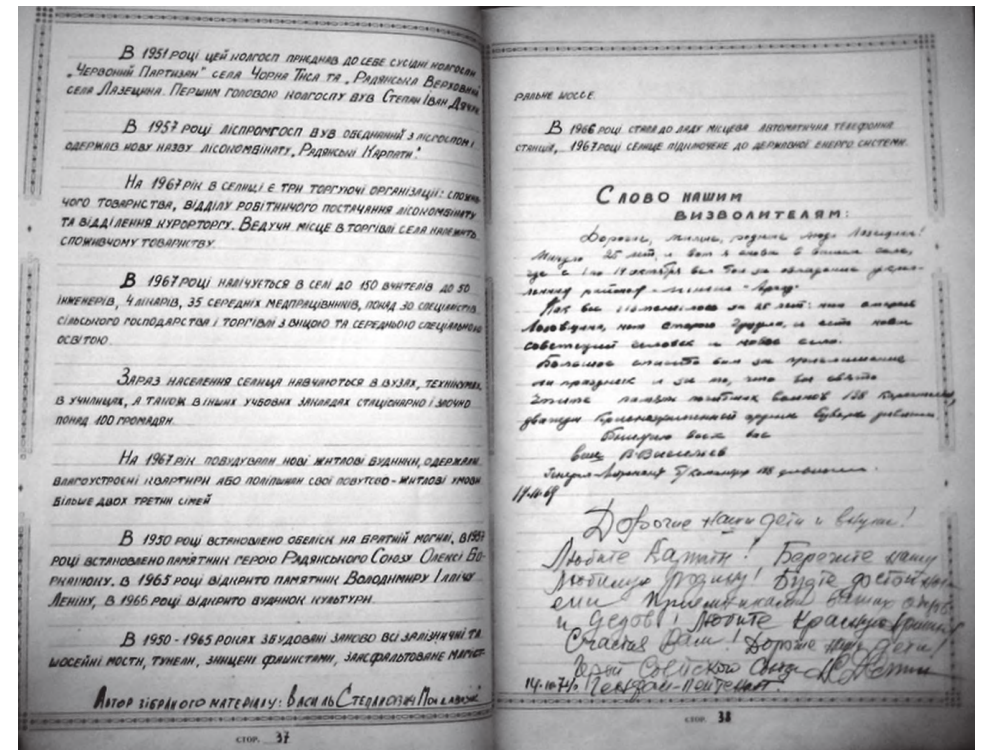 В 1951 РОЦІ ЦЕЙ КОЛГОСП ПРИЄДНАВ ДО СЕБЕ СУСІДНІ КОЛГОСПИ
„ЧЕРВОНИЙ ПАРТИЗАН" СЕЛА ЧОРНА ТИСА ТА „РАДЯНСЬКА ВЕРХОВИНА
СЕЛА ЛАЗЕЩИНА. ПЕРШИМ ГОЛОВОЮ КОЛГОСПУ БУВ СТЕПАН ІВАН ДЯЧУК
В 1957 РОЦІ ЛІСПРОМГОСП БУВ ОБЄДНАНИЙ З ЛІСГОСПОМ І
ОДЕРЖАВ НОВУ НАЗВУ ЛІСОКОМБІНАТУ „РАДЯНСЬКІ КАРПАТИ".
НА 1967 РІК В СЕЛИЩІ Є ТРИ ТОРГУЮЧІ ОРГАНІЗАЦІЇ: СПОЖИВ-
ЧОГО ТОВАРИСТВА, ВІДДІЛУ РОБІТНИЧОГО ПОСТАЧАННЯ ЛІСОКОМБІНАТУ
ТА ВІДДІЛЕННЯ КУРОРТОРГУ. ВЕДУЧИ МІСЦЕ В ТОРГІВЛІ СЕЛА НАЛЕЖИТЬ
СПОЖИВЧОМУ ТОВАРИСТВУ.
В 1967 РОЦІ НАЛІЧУЄТЬСЯ В СЕЛІ ДО 150 ВЧИТЕЛІВ ДО 50
ІНЖЕНЕРІВ, 4 ЛІКАРІВ, 35 СЕРЕДНІХ МЕДПРАЦІВНИКІВ, ПОНАД 30 СПЕЦІАЛІСТІВ
СІЛЬСЬКОГО ГОСПОДАРСТВА І ТОРГІВЛІ З ВИЩОЮ ТА СЕРЕДНЬОЮ СПЕЦІАЛЬНОЮ
ОСВІТОЮ
ЗАРАЗ НАСЕЛЕННЯ СЕЛИЩА НАВЧАЮТЬСЯ В ВУЗАХ, ТЕХНІКУМАХ,
В УЧИЛИЩАХ, А ТАКОЖ В ІНШИХ УЧБОВИХ ЗАКЛАДАХ СТАЦІОНАРНО І ЗАОЧНО
ПОНАД 100 ГРОМАДЯН.
НА 1967 РІК ПОБУДУВАЛИ НОВІ ЖИТЛОВІ БУДИНКИ, ОДЕРЖАЛИ
БЛАГОУСТРОЄНІ КВАРТИРИ АБО ПОЛІПШИЛИ СВОЇ ПОБУТОВО-ЖИТЛОВІ УМОВИ
БІЛЬШЕ ДВОХ ТРЕТИН СІМЕЙ
В 1950 РОЦІ ВСТАНОВЛЕНО ОБЕЛІСК НА БРАТНІЙ МОГИЛІ, В 1957
РОЦІ ВСТАНОВЛЕНО ПАМ'ЯТНИК ГЕРОЮ РАДЯНСЬКОГО СОЮЗУ ОЛЕКСІ БОР-
КАНЮКУ. В 1965 РОЦІ ВІДКРИТО ПАМЯТНИК ВОЛОДИМИРУ ІЛЛІЧУ
ЛЕНІНУ, В 1966 РОЦІ ВІДКРИТО БУДИНОК КУЛЬТУРИ.
В 1950-1965 РОКАХ ЗБУДОВАНІ ЗАНОВО ВСІ ЗАЛІЗНИЧНІ ТА
ШОСЕЙНІ МОСТИ, ТУНЕЛИ, ЗНИЩЕНІ ФАШИСТАМИ, ЗААСФАЛЬТОВАНЕ МАГІСТ-
АВТОР ЗІБРАНОГО МАТЕРІАЛУ: ВАСИЛЬ СТЕПАНОВИЧ
СТОР. 37
РАЛЬНЕ ШОССЕ.
В 1966 РОЦІ СТАЛА ДО ЛАДУ МІСЦЕВА АВТОМАТИЧНА ТЕЛЕФОННА
СТАНЦІЯ, 1967 РОЦІ СЕЛИЩЕ ПІДКЛЮЧЕНЕ ДО ДЕРЖАВНОЇ ЕНЕРГО СИСТЕМИ.
СЛОВО НАШИМ
ВИЗВОЛИТЕЛЯМ:
Дорогие, милые, родные люди
Минуло 25 лет, и вот я снова в вашем селе,
где с 1 по 17 октября вел бой за овладение
Как все изменилось за 25 лет: нет старой
нет старого и есть новый
советский человек и новое село.
Большое спасибо вам за приглашение
на праздник и за то, что вы свято
чтите память погибших воинов 138
дважды Краснознаменной
вас
ваш В. Васильев
Генерал-лейтенант б/ командир 138 дивизии.
17.10.69
Дорогие наши дети и внуки!
Любите Партию! Берегите нашу
Любимую Родину! Будте достойны
ми Приемниками ваших отцов
и Дедов! Любите Красную Армию
Счастья Вам! Дорогие наши дети!
Герой Советского Союза
14.10.74г. Генерал-Лейтенант.
СТОР. 38